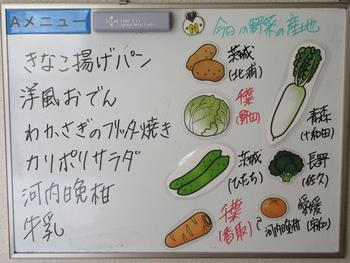 Aメニュー
きなこ揚げパン
洋風おでん
わかさぎのフリッター焼き
カリポリサラダ
河内晩柑
牛乳
N
今日の野菜の産地
茨城
(北浦)
千葉
(野田)
青森
(十和田)
茨城
(ひたち)
長野
(佐久)
千葉
(香取)
愛媛
河内晩柑